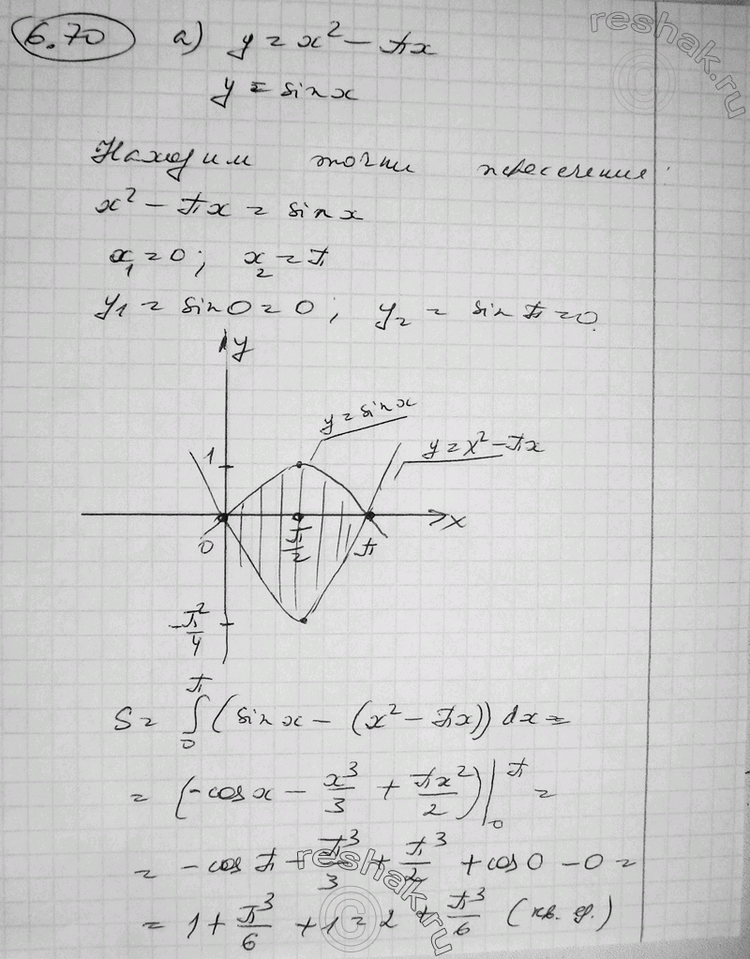 6.70 а) y = x² - πx
y = sin x
Находим точки пересечения:
x² - πx = sin x
x₁ = 0; x₂ = π
y₁ = sin 0 = 0; y₂ = sin π = 0
y
y = sin x
y = x² - πx
1
x
0
π/2
π
-π²/4
S = ∫₀^π (sin x - (x² - πx)) dx =
= (-cos x - x³/3 + πx²/2)|₀^π =
= -cos π - π³/3 + π³/2 + cos 0 - 0 =
= 1 + π³/6 + 1 = 2 + π³/6 (кв. ед.)
reshak.ru
reshak.ru